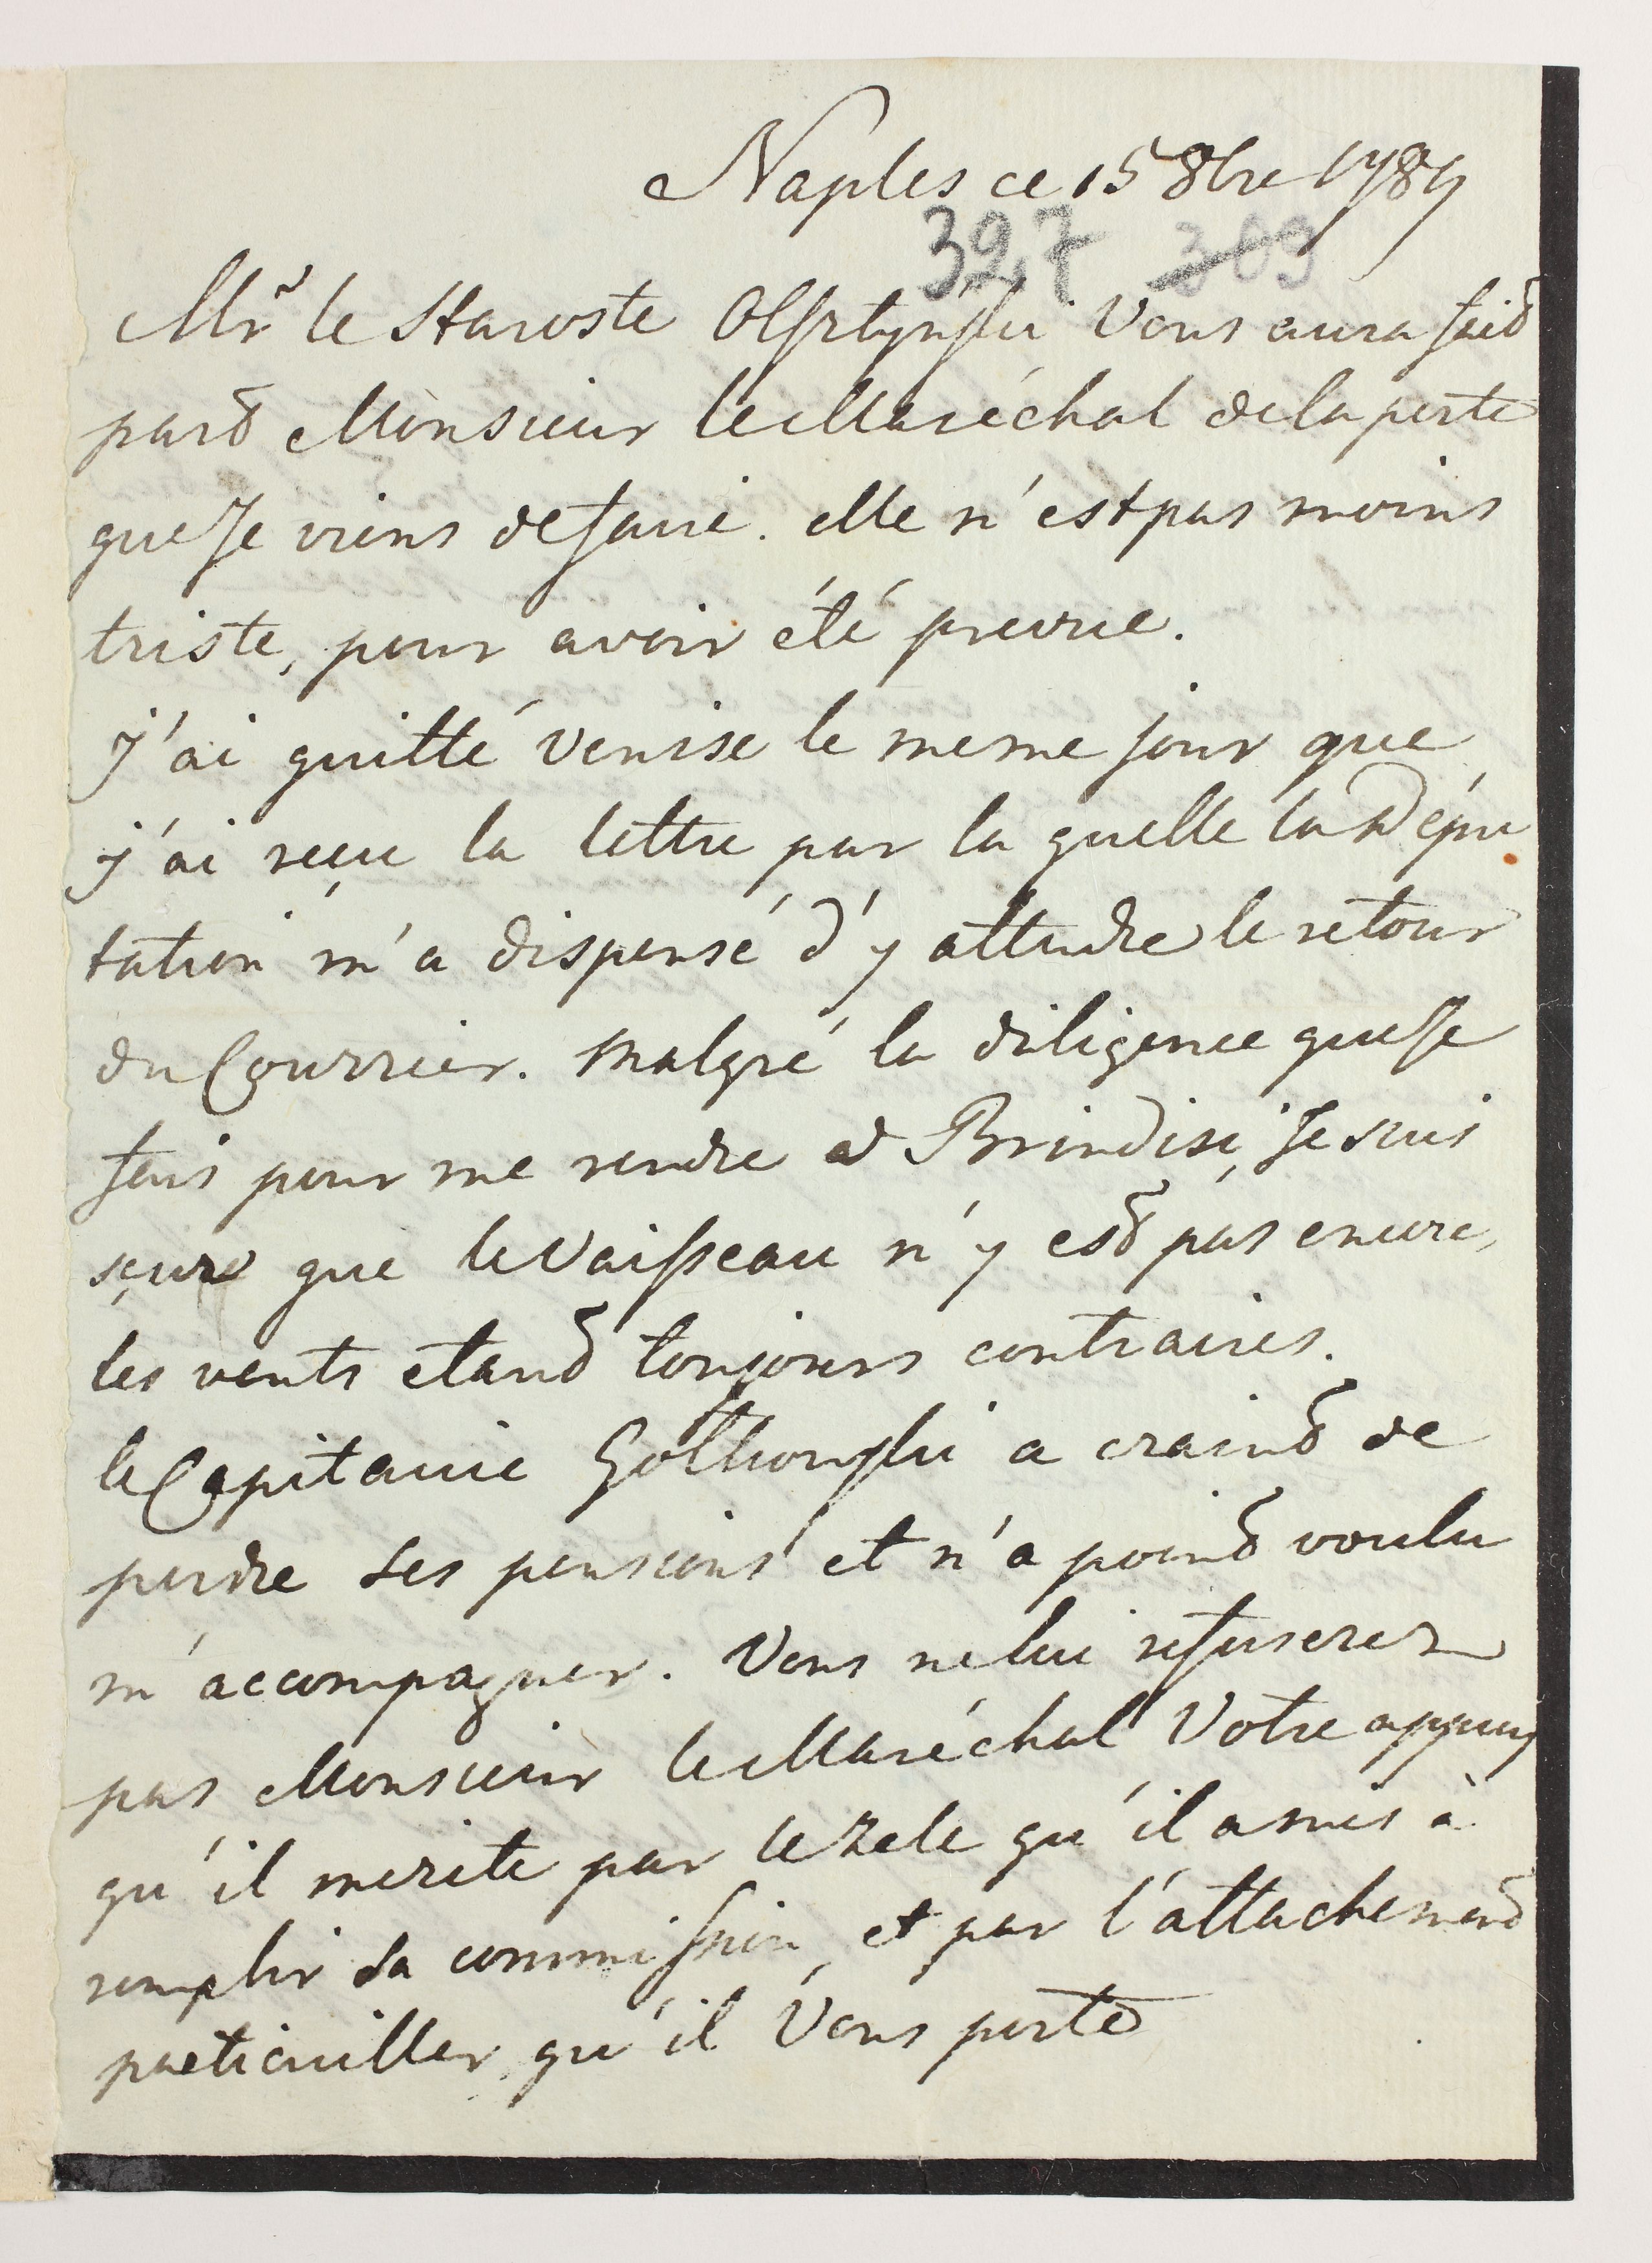 Naples ce 15 8bre 1789
327 309
Mr le Staroste Olsztynski Vous aura fait
part Monsieur le Maréchal de la perte
que Je viens de faire. elle n'est pas moins
triste, pour avoir été prevue.
J'ai quitté Venise le meme jour que
j'ai reçu la lettre par la quelle la Dépu
tation m'a dispensé d'y attendre le retour
du Courrier. Malgré la diligence que Je
fais pour me rendre a Brindisi, Je suis
sçure que le Vaisseau n'y est pas encore,
les vents etant toujours contraires.
le Capitaine a craint de
perdre ses pensions et n'a point voulu
m'accompagner. Vous ne lui refuserez
pas Monsieur le Maréchal Votre appuy
qu'il merite par le zele qu'il a mis à
remplir sa commission, et par l'attachement
particuiller, qu'il Vous porte